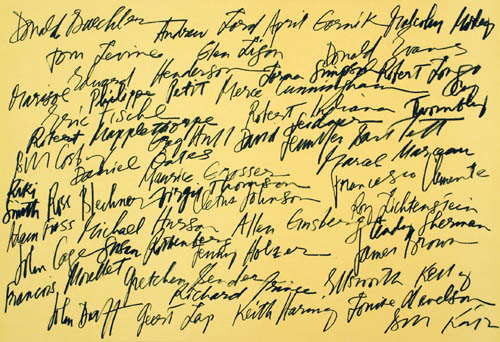 Donald Baechler Andrew Lord April Gornik Malcolm Morley
Tom Levine Glen Ligon Donald Evans
Marisol Edward Henderson Lorna Simpson Robert Longo
Eric Fischl Philippe Petit Merce Cunningham Cy
Robert Mapplethorpe Greg Robert Twombly
Bill Cosby Daniel Oates David Jennifer Bartlett
Kiki Maurice Grosser Marcel
Smith Ross Bleckner Virgil Thompson Francesco Clemente
Adam Fuss Michael Cletus Johnson Roy Lichtenstein
John Cage Susan Rothenberg Allen Ginsberg Cindy Sherman
Francois Morellet Jenny Holzer James Brown
Gretchen Bender Richard Prince Ellsworth Kelly
John Duff Geert Keith Haring Louise Nevelson
Bill Katz